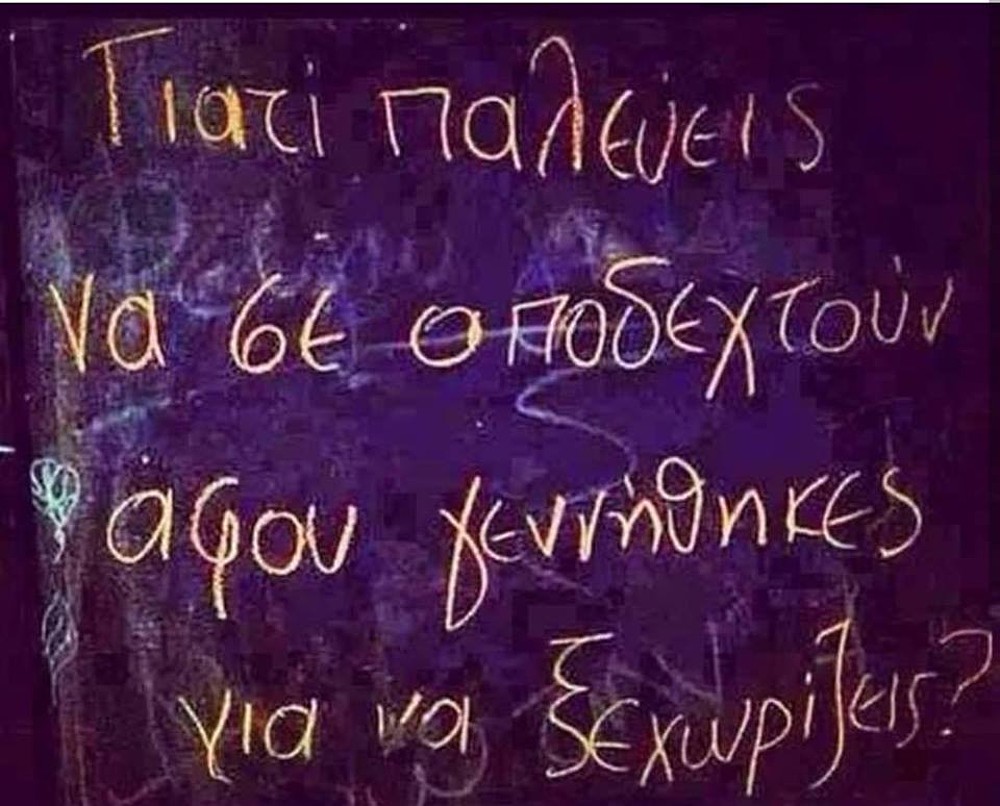 Γιατί παλεύεις
να σε αποδεχτούν
άφου γεννήθηκες
για να ξεχωρίζεις?